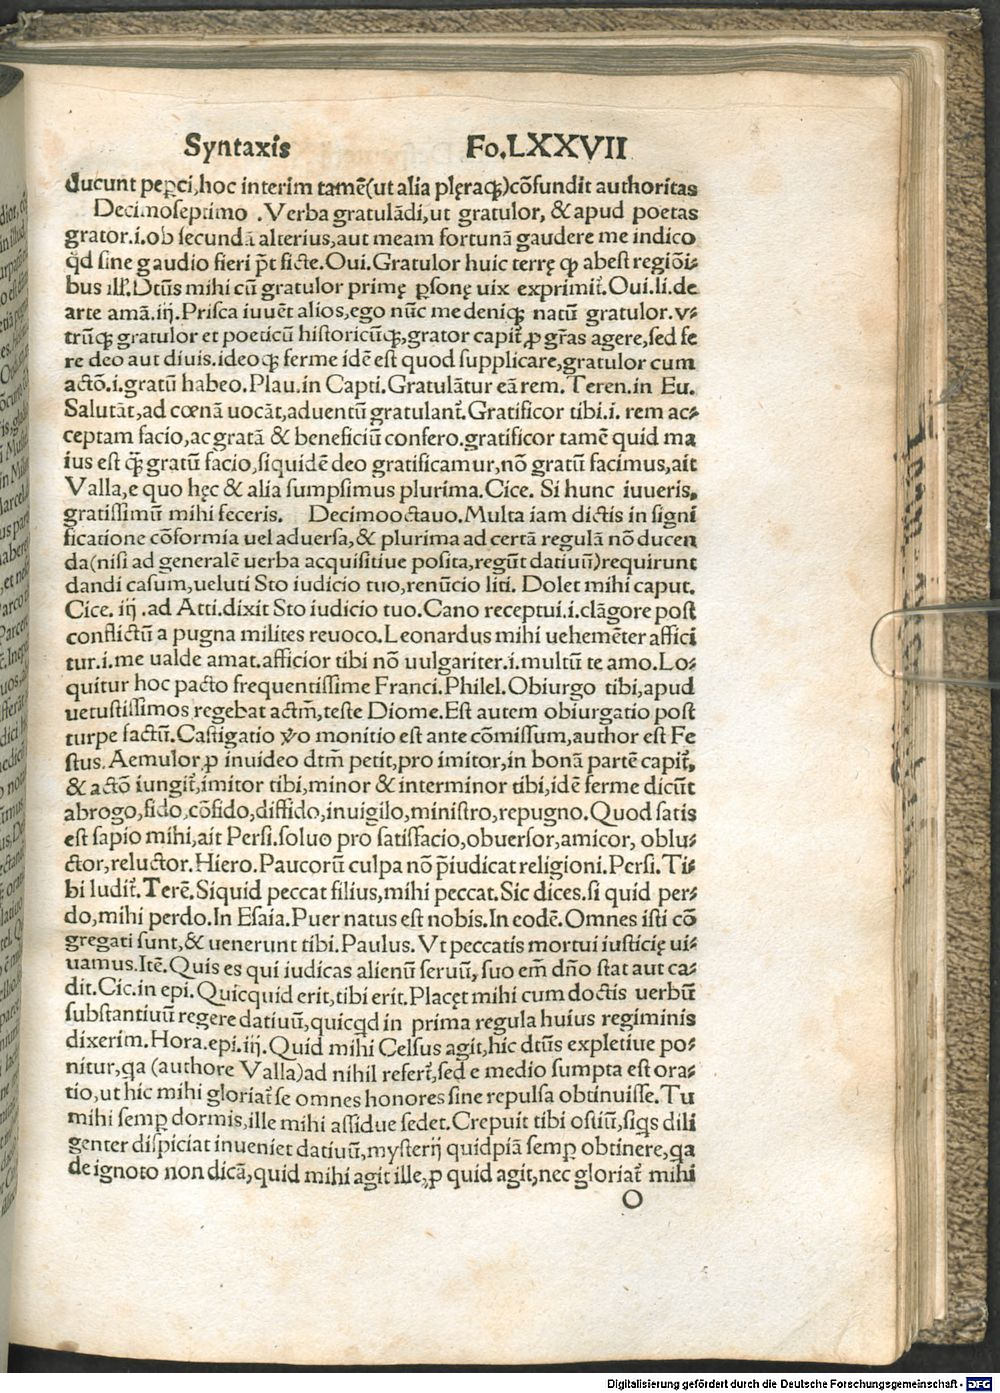 Syntaxis Fo.LXXVII
ducunt peꝑci,hoc interim tamē(ut alia plęraqꝫ)cōfundit authoritas
Decimoseptimo .Verba gratulādi,ut gratulor, &apud poetas
grator.i.ob secundā alterius,aut meam fortunā gaudere me indico
qd̄ sine gaudio fieri pt̄ ficte.Oui.Gratulor huic terrę ꝙ abest regiōi⸗
bus ill.Dtūs mihi cū gratulor primę ꝑsonę uix exprimit̄.Oui.li.de
arte amā.iij.Prisca iuuēt alios,ego nūc me deniqꝫ natū gratulor.v⸗
trūqꝫ gratulor et poeticū historicūqꝫ,grator capit̄ ꝓ grās agere,sed fe
re deo aut diuis.ideoqꝫ ferme idē est quod supplicare,gratulor cum
actō.i.gratū habeo.Plau.in Capti.Gratulātur eā rem. Teren.in Eu.
Salutāt,ad cœnā uocāt,aduentū gratulant̄.Gratificor tibi.i. rem ac⸗
ceptam facio,ac gratā & beneficiū confero.gratificor tamē quid ma
ius est qꝫ̄ gratū facio,siquidē deo gratificamur,nō gratū facimus,ait
Valla,e quo hęc & alia sumpsimus plurima.Cice. Si hunc iuueris,
gratissimū mihi feceris. Decimooctauo.Multa iam dictis in signi
ficatione cōformia uel aduersa,& plurima ad certā regulā nō ducen
da(nisi ad generalē uerba acquisitiue posita,regūt datiuū)requirunt
dandi casum,ueluti Sto iudicio tuo,renūcio liti. Dolet mihi caput.
Cice. iij .ad Atti.dixit Sto iudicio tuo.Cano receptui.i.clāgore post
conflictū a pugna milites reuoco.Leonardus mihi uehemēter affici
tur.i.me ualde amat.afficior tibi nō uulgariter.i.multū te amo.Lo⸗
quitur hoc pacto frequentissime Franci.Philel.Obiurgo tibi,apud
uetustissimos regebat actm̄,teste Diome.Est autem obiurgatio post
turpe factū.Castigatio ꝟo monitio est ante cōmissum,author est Fe
stus.Aemulor,ꝓ inuideo dtm̄ petit,pro imitor,in bonā partē capit̄,
& actō iungit̄,imitor tibi,minor & interminor tibi,idē ferme dicūt
abrogo,fido,cōfido,diffido,inuigilo,ministro,repugno.Quod satis
est sapio mihi,ait Persi.soluo pro satisfacio,obuersor,amicor, oblu⸗
ctor,reluctor.Hiero.Paucorū culpa nō p̄iudicat religioni.Persi.Ti⸗
bi ludit̄.Terē.Siquid peccat filius,mihi peccat.Sic dices.si quid per⸗
do,mihi perdo.In Esaia.Puer natus est nobis.In eodē.Omnes isti cō
gregati sunt,& uenerunt tibi.Paulus.Vt peccatis mortui iusticię ui⸗
uamus.Itē.Quis es qui iudicas alienū seruū, suo em̄ dn̄o stat aut ca⸗
dit.Cic.in epi.Quicquid erit,tibi erit.Placęt mihi cum doctis uerbū
substantiuū regere datiuū,quicqd in prima regula huius regiminis
dixerim.Hora.epi.iij.Quid mihi Celsus agit,hic dtūs expletiue po⸗
nitur,qa (authore Valla)ad nihil refert̄,sed e medio sumpta est ora⸗
tio,ut hic mihi gloriat̄ se omnes honores sine repulsa obtinuisse.Tu
mihi semꝑ dormis,ille mihi assidue sedet.Crepuit tibi ostiū,siqs dili
genter dispiciat inueniet datiuū,mysterij quidpiā semꝑ obtinere,qa
de ignoto non dicā,quid mihi agit ille,ꝓ quid agit,nec gloriat̄ mihi
O
Digitalisierung gefördert durch die Deutsche Forschungsgemeinschaft - DFG